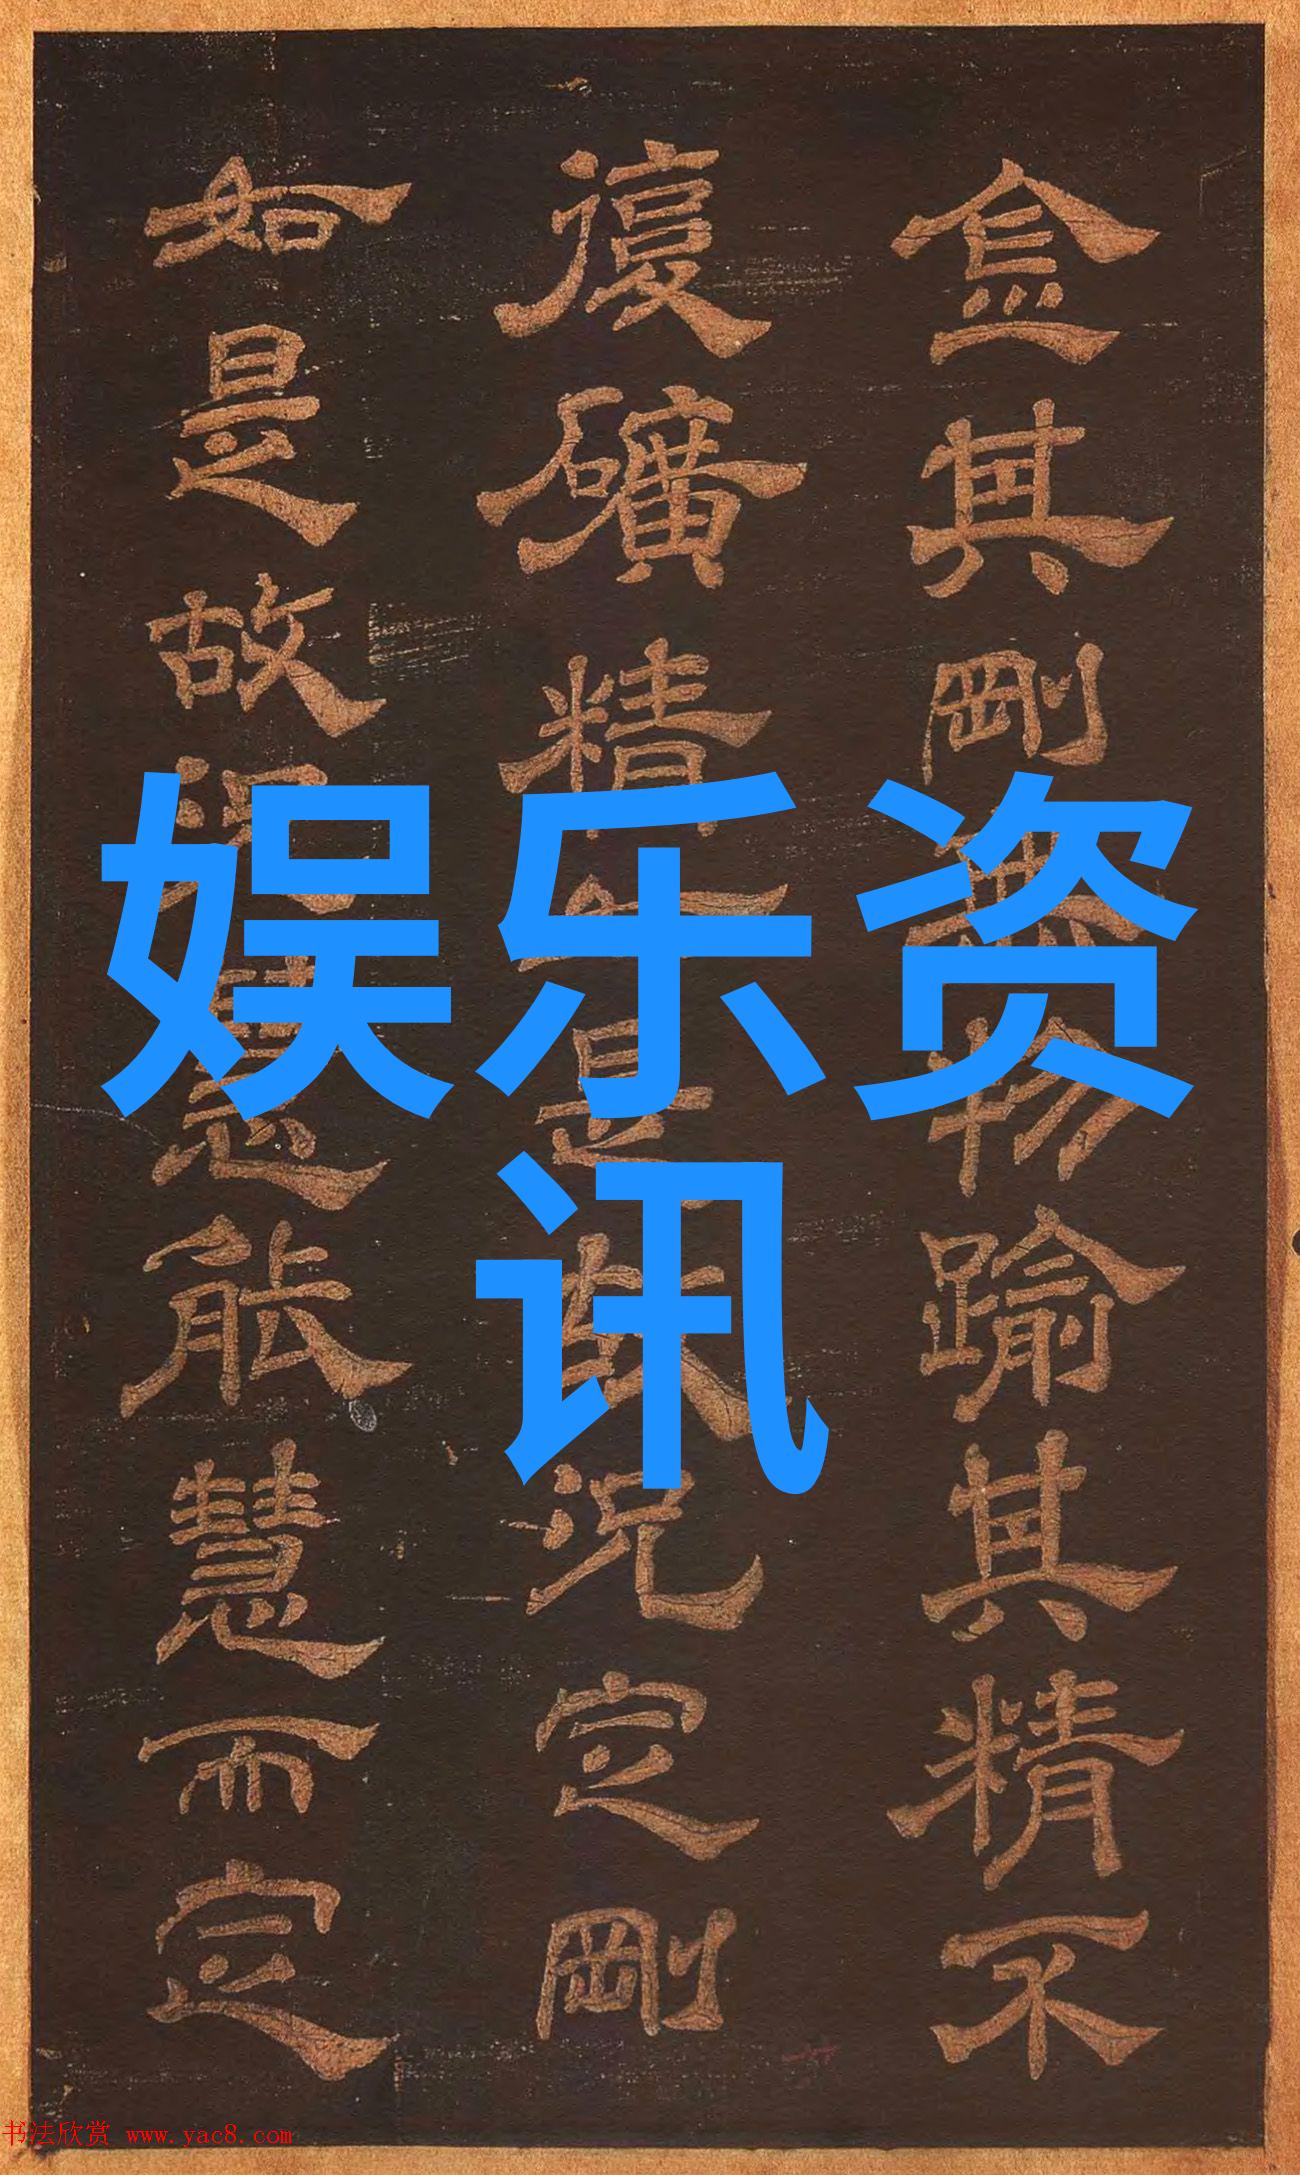 金其剛物踰其精不
復礦精是況定剛
如是故能慧而定
娱乐资
讯
书法欣赏 www.yac8.com